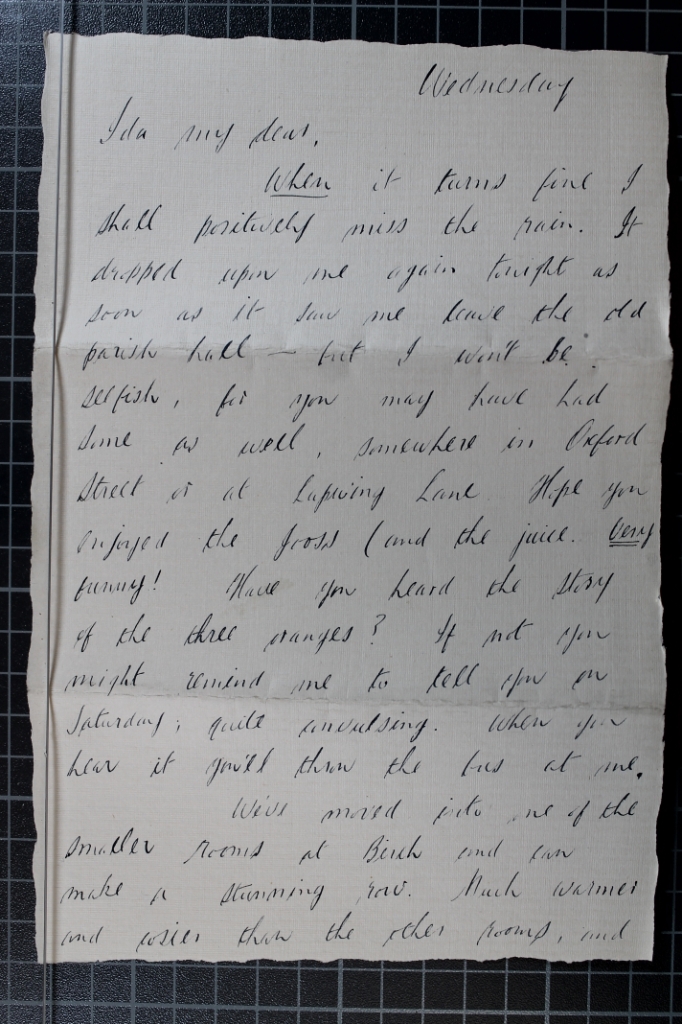 Wednesday
Ida my dear,
When it turns fine I
shall positively miss the rain. It
dropped upon me again tonight as
soon as it saw me leave the old
parish hall — but I won't be
selfish, for you may have had
some as well, somewhere in Oxford
Street or at Lapwing Lane. Hope you
enjoyed the (and the juice. Very
funny! Have you heard the story
of the three oranges? If not you
might remind me to tell you on
Saturday; quite convulsing. When you
hear it you'll throw the bus at me.
We've moved into one of the
smaller rooms at Birch and can
make a stunning row. Much warmer
and cosier than the other rooms, and